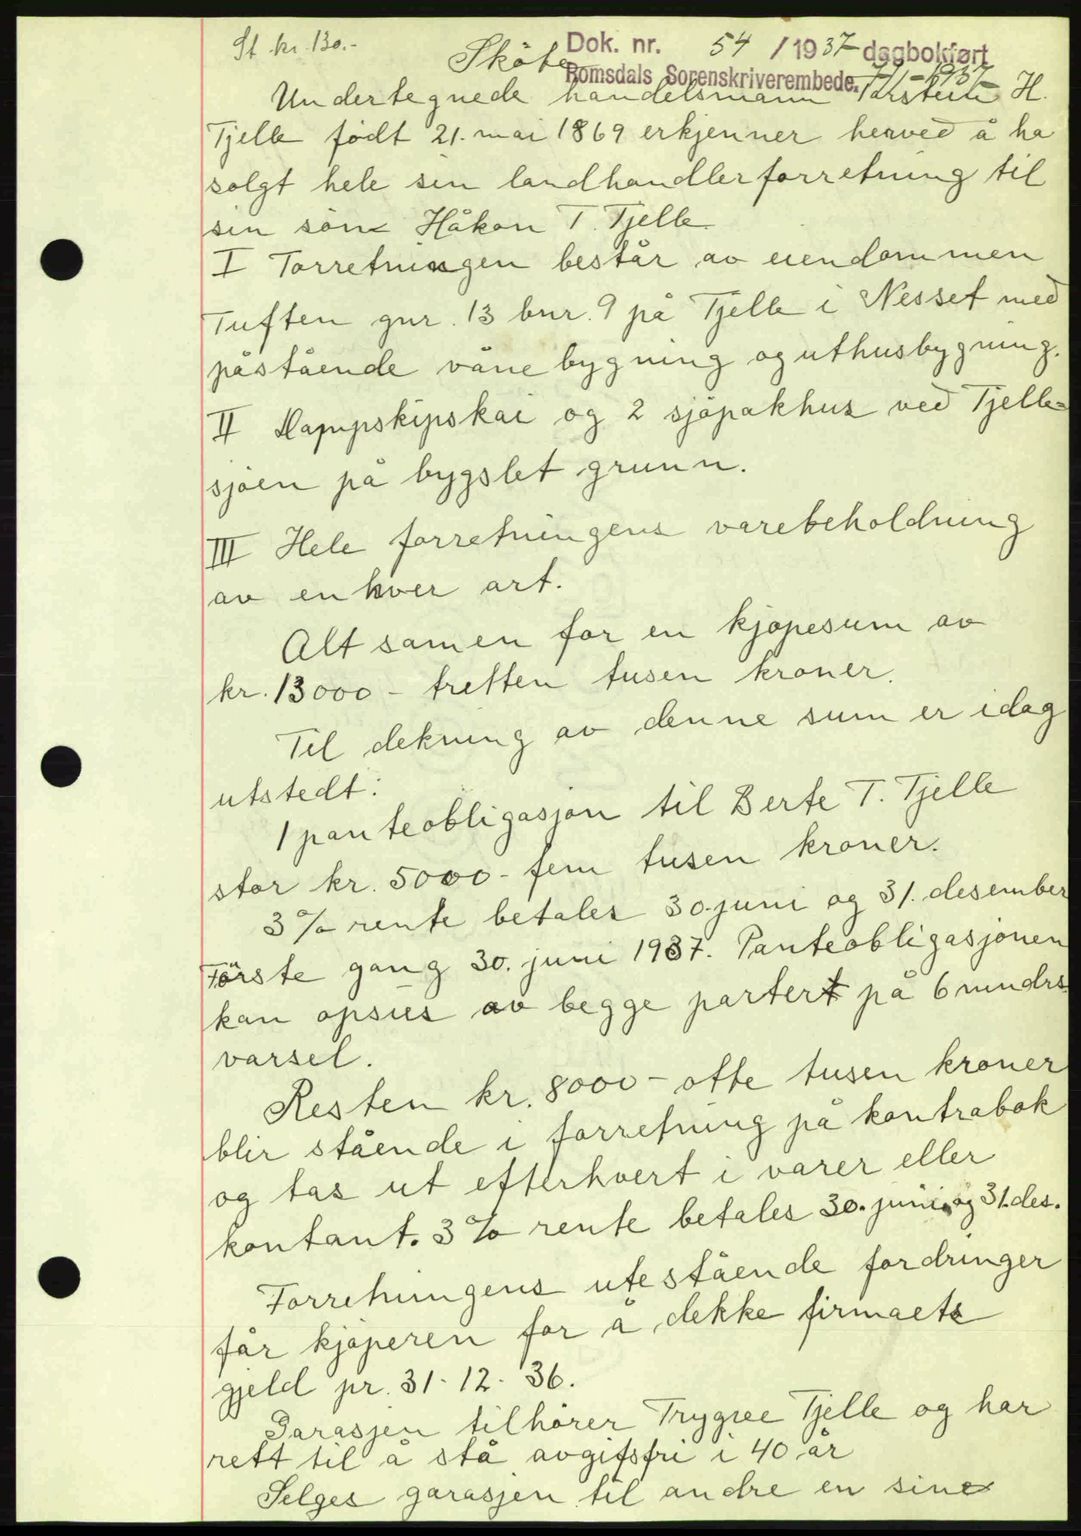 St kr. 130.-
Dok. nr. 54 / 1937 dagbokført
Sköte
7/1-1937
Romsdals Sorenskriverembede.
Undertegnede handelsmann Torstein H.
Tjelle født 21. mai 1869 erkjenner herved å ha
solgt hele sin landhandlerforretning til
sin sönn Håkon T. Tjelle.
I Forretningen består av eiendommen
Tuften gnr. 13 bnr. 9 på Tjelle i Nesset med
påstående vånebygning og uthusbygning.
II Dampskipskai og 2 sjöpakhus ved Tjelle-
sjöen på bygslet grunn.
III Hele forretningens varebeholdning
av enhver art.
Alt samen for en kjöpesum av
kr. 13000 - tretten tusen kroner.
Til dekning av denne sum er idag
utstedt:
1 panteobligasjon til Berte T. Tjelle
stor kr. 5000 - fem tusen kroner.
3 % rente betales 30. juni og 31. desember
Förste gang 30. juni 1937. Panteobligasjonen
kan opsies av begge parter på 6 mndrs
varsel.
Resten kr. 8000 - otte tusen kroner
blir stående i forretning på kontrabok
og tas ut efterhvert i varer eller
kontant. 3 % rente betales 30. juni og 31. des.
Forretningens utestående fordringer
får kjöperen for å dekke firmaets
gjeld pr. 31-12-36.
Garasjen tilhörer Trygve Tjelle og har
rett til å stå avgifsfri i 40 år
Selges garasjen til andre en sine